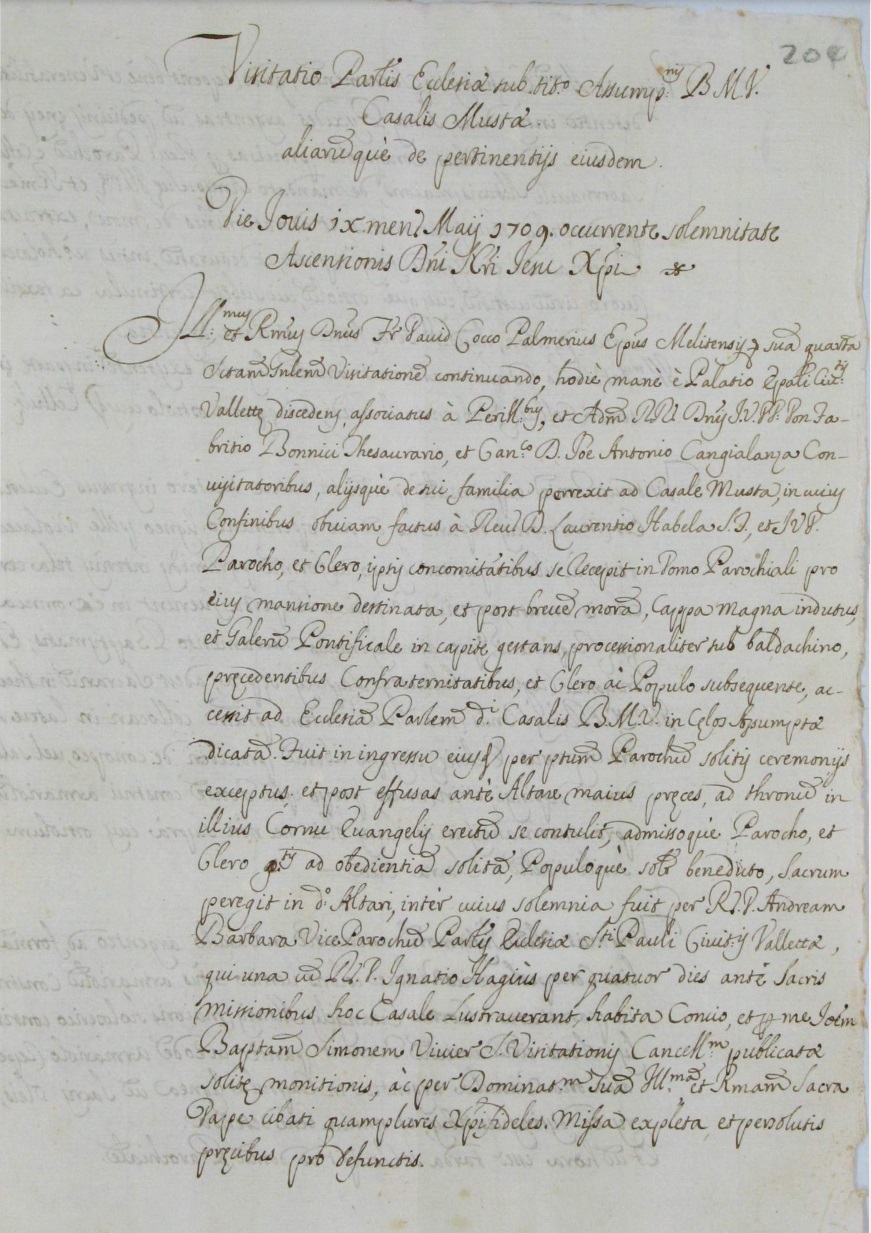 204
Visitatio Parlis Ecclesiæ sub tito Assumpnis B M V.
Casalis Mustæ
aliarumquè de pertinentijs eiusdem.
Die Jouis ix mens Maij 1709. occurrente solemnitate
Ascensionis Dñi Ñri Jesu Xpi
Ill.mus et Rmus Dnus Fr Dauid Cocco Palmerius Epus Melitensis suã quarta
Gñlem Visitationẽ continuando, hodiè manè è Palatio Epali Ciu.tis
Vallettę discedens, associatus à Perill.bus, et Adm RR Dnis J.V.PP. Don Fa-
britio Bonnici Thesaurario, et Can.co D. Joe Antonio Cangialanza Con-
uisitatoribus, alijsquè de sui familia perrexit ad Casale Musta, in cuius
Confinibus obuiam factus à Reu D. Laurentio Habela S.T., et J V P.
Parocho, et Clero, ipsis concomitãtibus se recepit in Domo Parochiali pro
eius mansione destinata, et post breuẽ morã, Cappa magna indutus,
et Galerũ Pontificale in capite gestans, processionaliter sub baldachino,
pręcedentibus Confraternitatibus, et Clero ac Populo subsequente, ac-
cessit ad Ecclesiã Parlem d.i Casalis B.M.V. in Cęlos Assumptæ
dicatã. Fuit in ingressu eiusd per ptum Parochũ solitis ceremonijs
exceptus, et post effusas antè Altare maius pręces, ad thronũ in
illius Cornu Euangelij erectũ se contulit, admissoquè Parocho, et
Clero ad obedientiã solitã, Populoquè benedicto, Sacrum
peregit in d.o Altari, intèr cuius solemnia fuit per R.P. Andream
Barbara ViceParochũ Parlis Ecclesiæ S.ti Pauli Ciuit.is Vallettæ,
qui una cũ R.P. Ignatio Hagius per quatuor dies antè Sacris
missionibus hoc Casale lustrauerant, habita Concio, et p me Joẽm
Baptam Simonem Viuier S. Visitationis Cancell.m publicatæ
solitę monitionis, ac per Dominat.m Suã Ill.ma et Rmam Sacra
Dape cibati quamplures Xpifideles. Missa expleta, et persolutis
pręcibus pro defunctis.